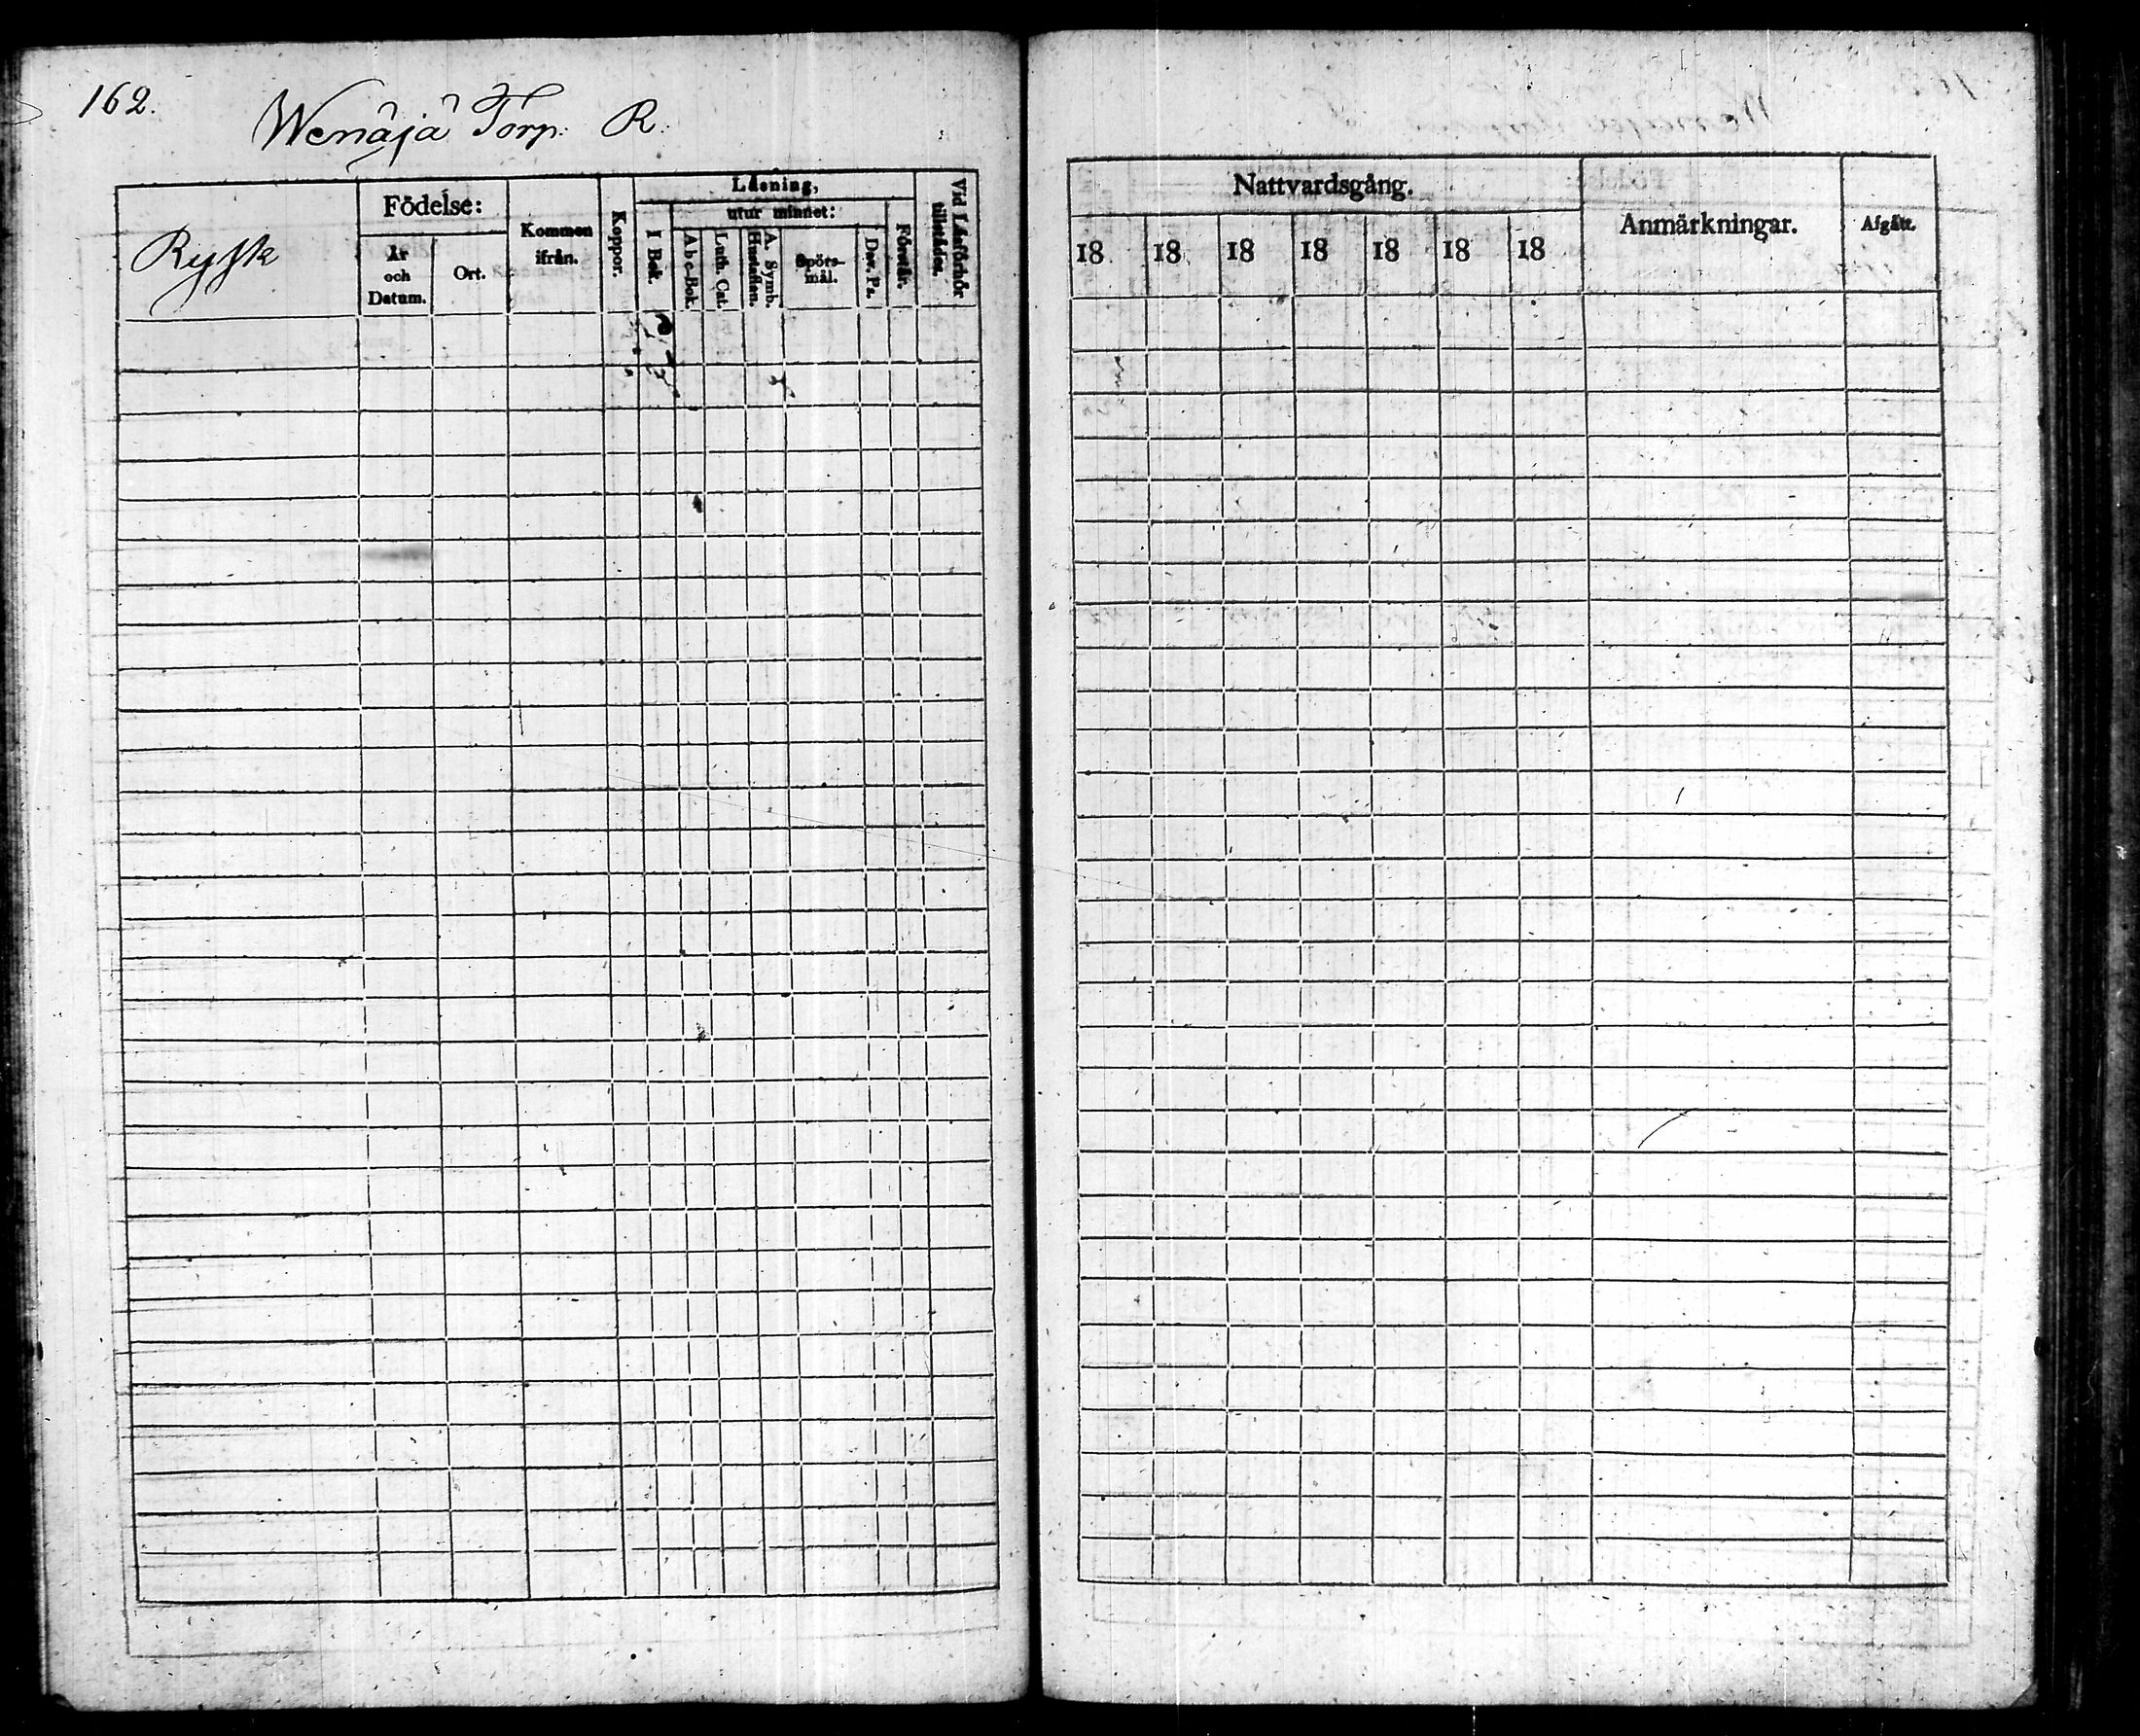 162.
Wenäjä Torp. R.
Rysk
Födelse:
År och Datum.
Ort.
Kommen ifrån.
Koppor.
Läsning,
utur minnet:
I Bok.
Abc-Bok.
Luth. Cat.
Hustaflan.
A. Symb.
Spörs-
mål.
Dav. Ps.
Förstår.
Vid Läsförhör
tillstädes.
Nattvardsgång.
18 18 18 18 18 18 18
Anmärkningar.
Afgått.